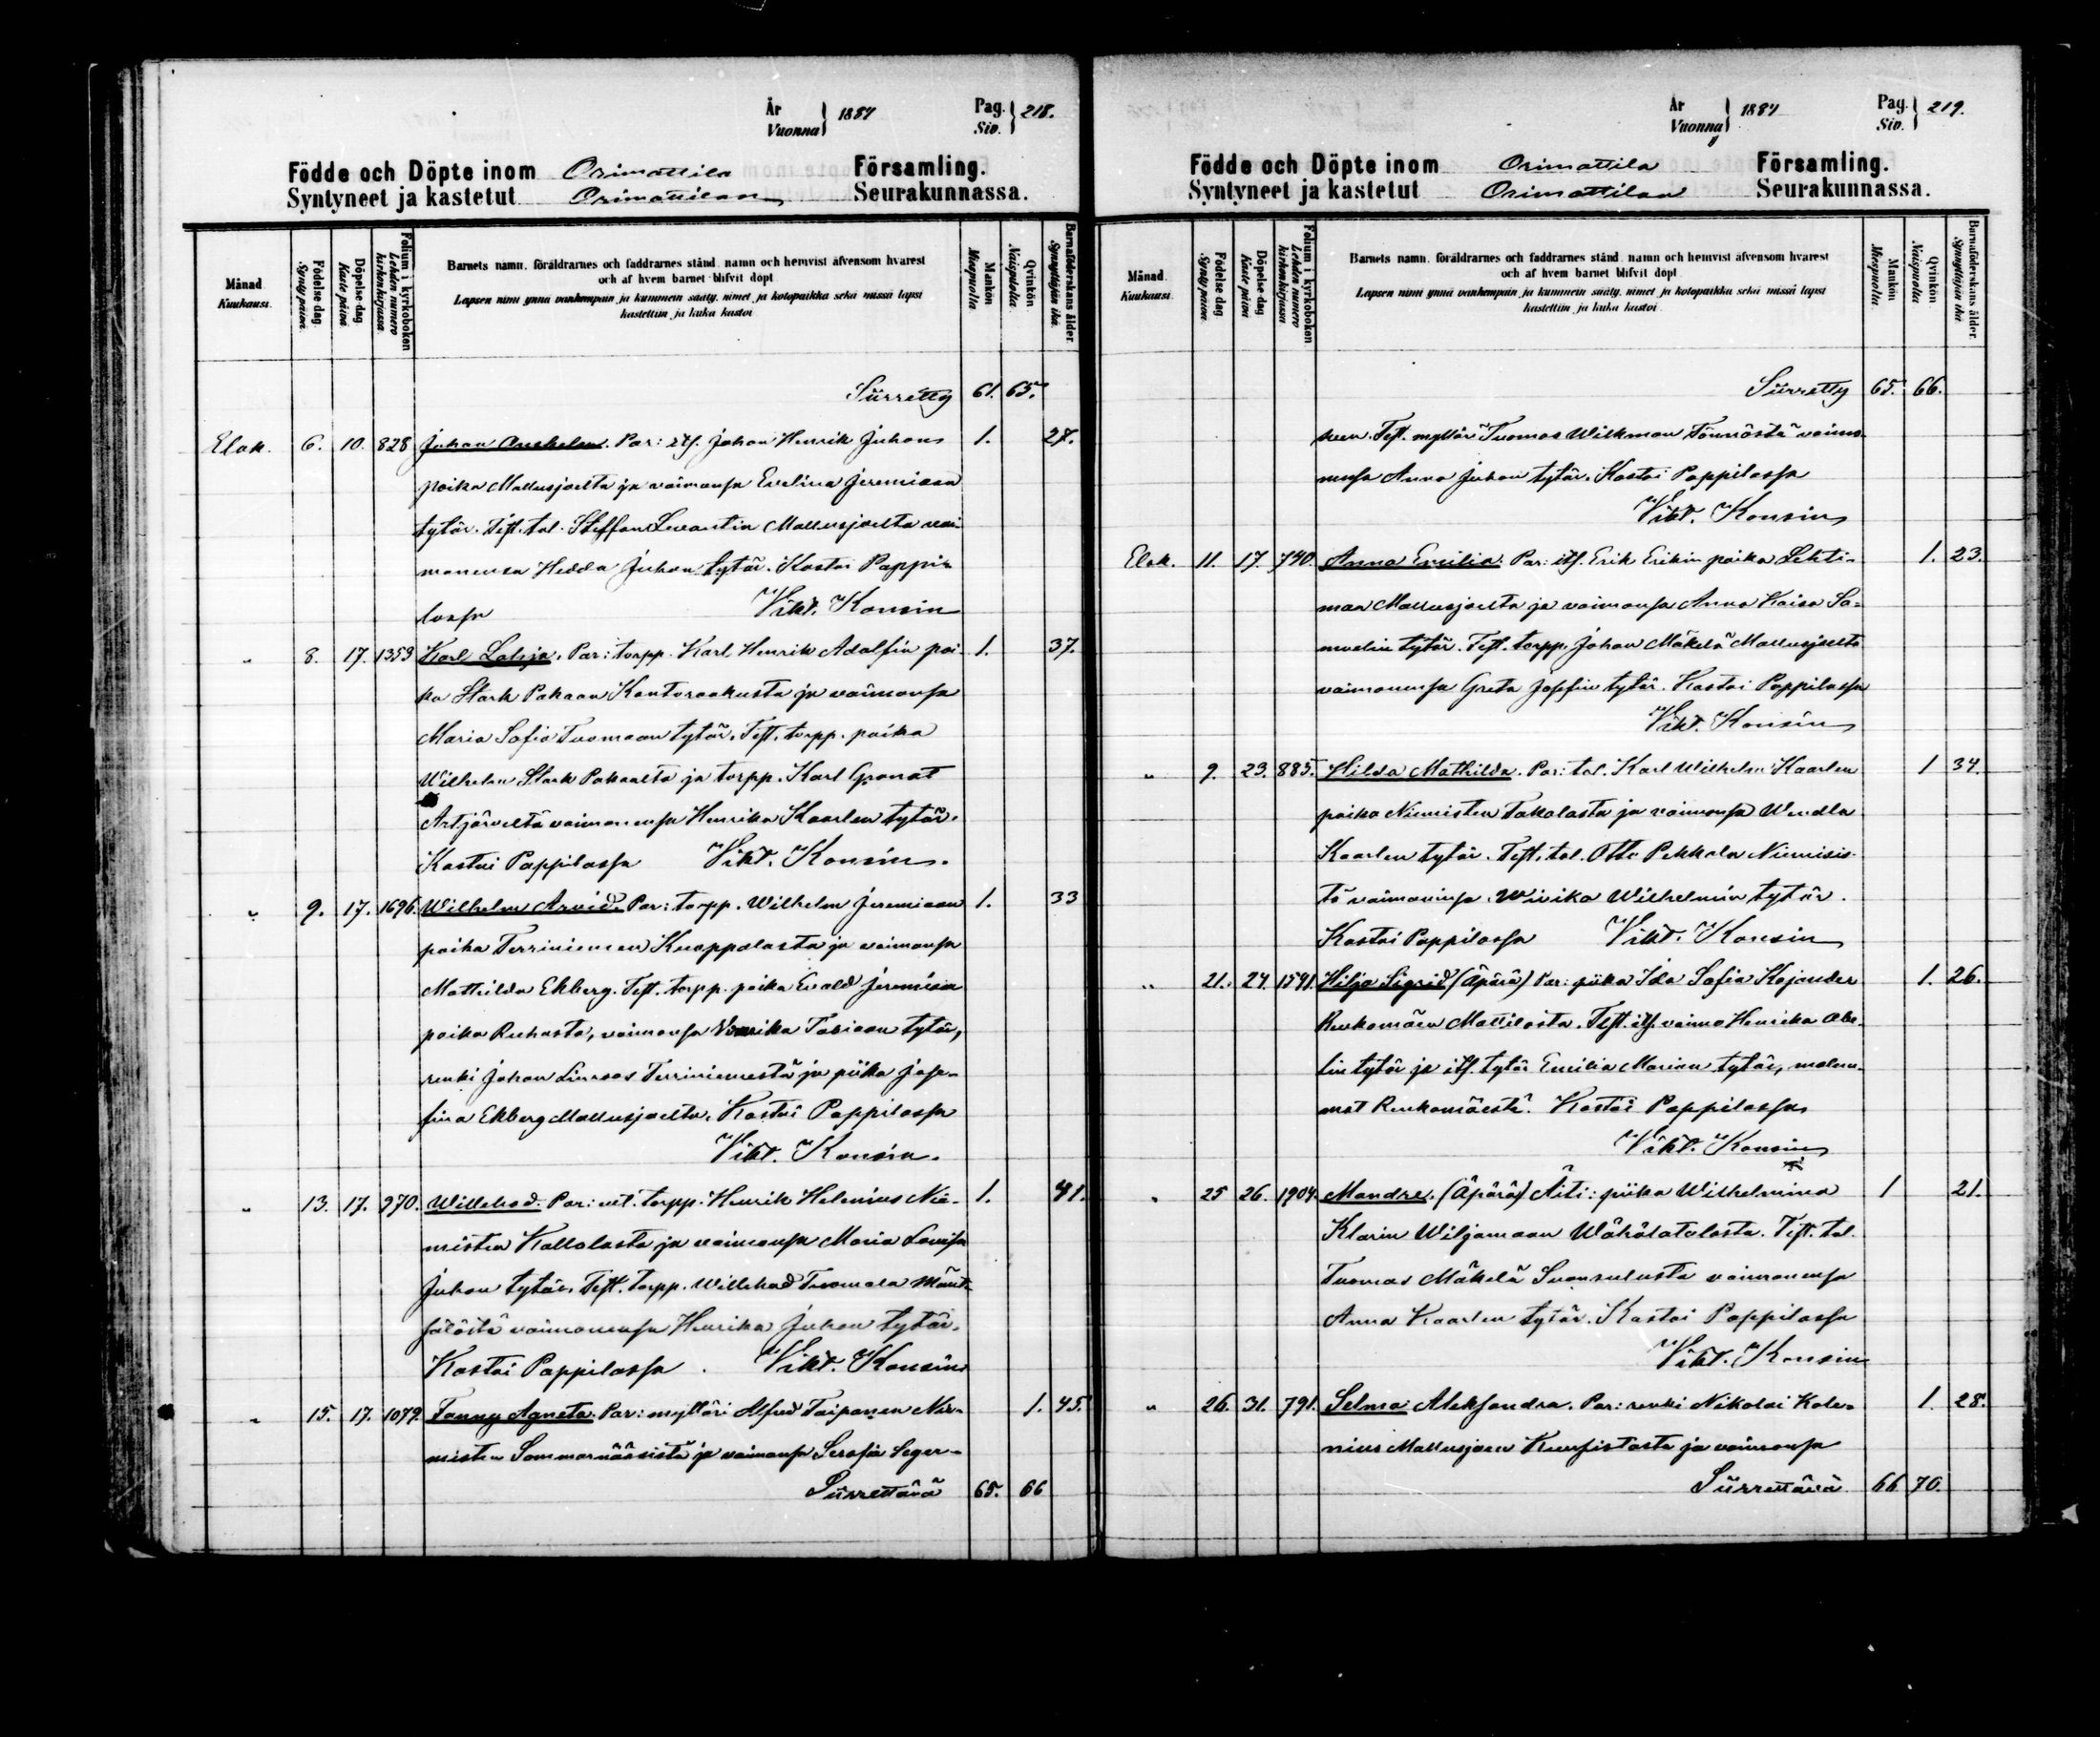 År
Vuonna } 1884
Pag.
Siv. } 218.
Födde och Döpte inom Orimattila Församling.
Syntyneet ja kastetut Orimattilan Seurakunnassa.
Månad.
Kuukausi.
Födelse dag.
Synty päivä.
Döpelse dag
Kaste päivä
Folium i kyrkoboken
Lehden numero
kirkonkirjassa
Barnets namn, föräldrarnes och faddrarnes stånd, namn och hemvist äfvensom hvarest
och af hvem barnet blifvit döpt
Lapsen nimi ynnä vanhempain ja kummein sääty, nimet ja kotopaikka sekä missä lapsi
kastettiin ja kuka kastoi
Mankön
Miespuolta
Qvinkön
Naispuolta.
Barnaföderskans ålder.
Synnyttäjän ikä.
Siirretty 61. 65.
Elok. 6. 10. 828 Juhan Anshelm. Par: itf. Johan Henrik Juhan 1. 27.
poika Mallusjoelta ja vaimonsa Evelina Jeremiaan
tytär. Test. tal. Steffan Levantin Mallusjoelta vai-
monensa Hedda Juhan tytär. Kastoi Pappi-
lassa Vikt. Konsin
„ 8. 17. 1353 Karl Lahja. Par: torpp. Karl Henrik Adolfin poi- 1. 37.
ka Stark Pakaan Kantoraakusta ja vaimonsa
Maria Sofia Tuomaan tytär. Test. torpp. poika
Wilhelm Stark Pakaalta ja torpp. Karl Granat
Artjärveltä vaimonensa Henrika Kaarlen tytär.
Kastoi Pappilassa Vikt. Konsin.
„ 9. 17. 1696. Wilhelm Arvid. Par: torpp. Wilhelm Jeremiaan 1. 33
poika Terriniemen Knappalasta ja vaimonsa
Mathilda Ekberg. Test. torpp. poika Evald Jeremian
poika Ruhasta, vaimonsa Tobiaan tytär,
renki Johan Linroos Terriniemestä ja piika Jose-
fina Ekberg Mallusjoelta. Kastoi Pappilassa
Vikt. Konsin.
„ 13. 17. 970. Willehad. Par: torpp. Henrik Helenius Nie- 1. 41.
misten Kallolasta ja vaimonsa Maria Lovisa
Juhan tytär. Test. torpp. Willehad Tuomala Mänt-
sälöstä vaimonensa Henrika Juhan tytär.
Kastoi Pappilassa. Vikt. Konsin
„ 15. 17. 1079. Fanny Agneta. Par: mylläri Alfred Taipanen Nie- 1. 45.
misten Sommarnääsistä ja vaimonsa Serafia Seger-
Siirrettävä 65. 66
År
Vuonna } 1884
Pag.
Siv. } 219.
Födde och Döpte inom Orimattila Församling.
Syntyneet ja kastetut Orimattilan Seurakunnassa.
Månad.
Kuukausi.
Födelse dag
Synty päivä.
Döpelse dag
Kaste päivä
Folium i kyrkoboken
Lehden numero
kirkonkirjassa
Barnets namn, föräldrarnes och faddrarnes stånd, namn och hemvist äfvensom hvarest
och af hvem barnet blifvit döpt
Lapsen nimi ynnä vanhempain ja kummein sääty, nimet ja kotopaikka sekä missä lapsi
kastettiin ja kuka kastoi
Mankön
Miespuolta.
Qvinkön
Naispuolta
Barnaföderskans ålder.
Synnyttäjän ikä
Siirretty 65. 66.
Test. mylläri Tuomas Wilkman Tönnöstä vaimo-
nensa Anna Juhan tytär. Kastoi Pappilassa
Vikt. Konsin
Elok. 11. 17. 740. Anna Emilia. Par: itf. Erik Erikin poika Lehti- 1. 23.
maa Mallusjoelta ja vaimonsa Anna Kaisa Sa-
muelin tytär. Test. torpp. Johan Mäkelä Mallusjoelta
vaimonensa Greta Josefin tytär. Kastoi Pappilassa
Vikt. Konsin
„ 9. 23. 885. Hilda Mathilda. Par: tal. Karl Wilhelm Kaarlen 1 34.
poika Niemisten Takalasta ja vaimonsa Wendla
Kaarlen tytär. Test. tal. Otto Pekkala Niemisis-
tä vaimoninsa Wivika Wilhelmin tytär.
Kastoi Pappilassa Vikt. Konsin
„ 21. 24. 1541. Hilja Sigrid (Äpärä) Par: piika Ida Sofia Kojander 1. 26.
Renkomäen Mattilasta. Test. itf. vaimo Henrika Abe-
lin tytär ja itf. tytär Emilia Marian tytär, molem-
mat Renkomäestä. Kastoi Pappilassa
Vikt. Konsin
„ 25 26. 1904. Mandre. (Äpärä) Äiti: piika Wilhelmina 1 21.
Klarin Wiljamaan Wähälatolasta. Test. tal.
Tuomas Mäkelä Suonsulusta vaimonensa
Anna Kaarlen tytär. Kastoi Pappilassa
Vikt. Konsin
„ 26. 31. 791. Selma Aleksandra. Par: renki Nikolai Kale- 1. 28.
nius Mallusjoen ja vaimonsa
Siirrettävä 66 70.